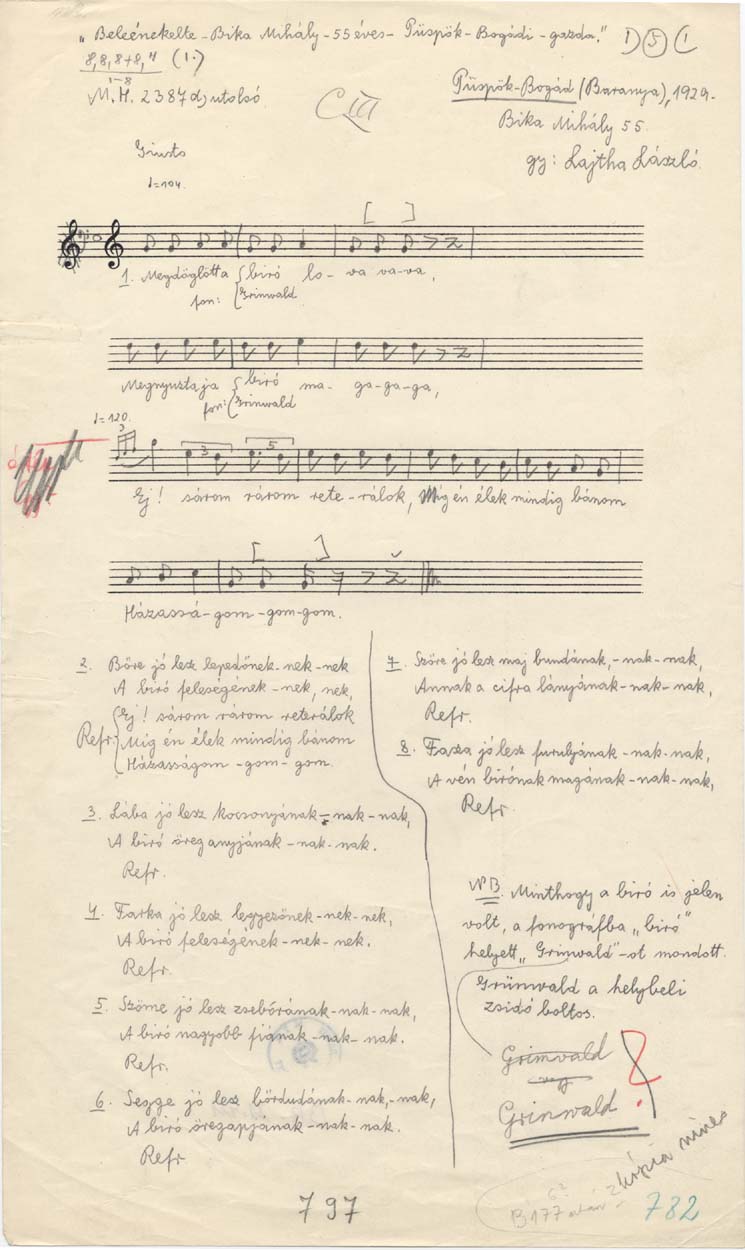 „Beleénekelte - Bika Mihály - 55 éves - Püspök-Bogádi - gazda."
1) 5 (1
8,8,8+8,4 (1.)
1-8
M.H. 2387 d; utolsó
Püspök-Bogád (Baranya), 1929.
Bika Mihály 55.
gy: Lajtha László.
Giusto
♩=104.
1. Megdöglötta { biró lo - va va-va,
fon: { Grinwald
Megnyusztaja { biró ma - ga-ga-ga,
fon: { Grinwald
♩=120.
3
3 5
Ej! sárom rárom rete-rálok, Míg én élek mindig bánom
Házassá-gom-gom-gom.
2. Bőre jó lesz lepedőnek-nek-nek
A biró feleségének-nek, nek,
Ej! sárom rárom reterálok
Refr. Míg én élek mindig bánom
Házasságom-gom-gom.
3. Lába jó lesz kocsonyának-nak-nak,
A biró öreganyjának-nak-nak.
Refr.
4. Farka jó lesz legyezőnek-nek-nek,
A biró feleségének-nek-nek.
Refr.
5. Szöme jó lesz zsebórának-nak-nak,
A biró nagyobb fiának-nak-nak.
Refr.
6. Segge jó lesz bördudának-nak,-nak,
A biró öregapjának-nak-nak.
Refr
7. Szőre jó lesz maj bundának,-nak-nak,
Annak a cifra lányának-nak-nak,
Refr.
8. Fasza jó lesz furulyának-nak-nak,
A vén birónak magának-nak-nak,
Refr.
NB. Minthogy a biró is jelen
volt, a fonográfba „biró"
helyett „Grinwald"-ot mondott.
Grünwald a helybeli
zsidó boltos.
Grimvald
vagy
Grinwald !
kópia nincs
B 177 után
797
782